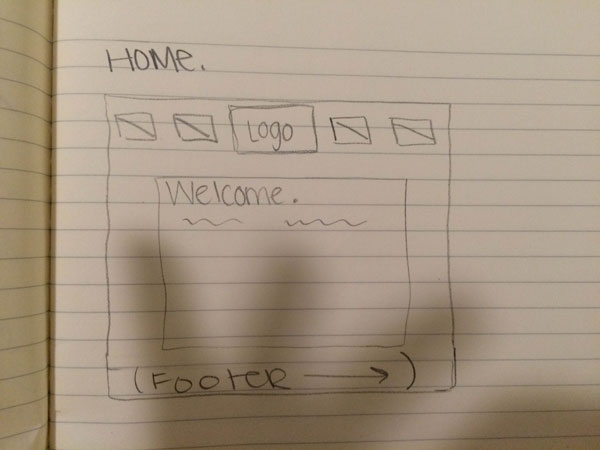 HOME.
Logo
Welcome.
(FOOTER → )